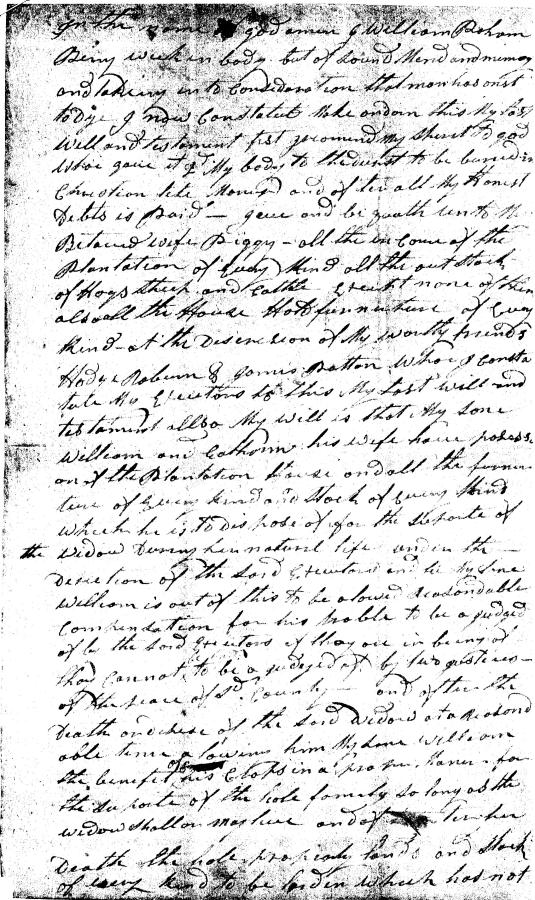 In the name of god amen I William Raburn
Being week in body but of sound Mend and memory
and takeing in to Consideration that man has onst
to dye I now Constatut Make and orn this My last
Will and testament first recomend my speret to god
Whoe gave it & My body to the dust to be buried in
Christian like Maner and after all My Honest
Debts is Paid — geve and bequath unto the
Beloved wife Piggy — all the in Come of the
Plantation of Every Kind all the out Stock
of Hogs Sheep and Cattle Except none of them
also all the House Hold furneture of Every
Kind — at the Descression of My worthy friends
Hodge Raburn & James Patton Whoe I Consta
tute My Executors to this My last will and
testament allso My will is that My sone
William and his wife have posess
on of the Plantation House and all the furne
ture of Every kind and Stock of Every Kind
which he is to dispose of for the suporte of
the widow During her natural life under the —
Direction of the said Executors and he my sone
William is out of this to be alowed Reasondable
Compensation for his troble to be a judged
of be the said Executors if they are in being if
thay Cannot to be a judged of by two justeces —
of the peace of sd County — and after the
Death and dese of the said widow at a Reasond
able time alowing him My sone William
the benefit of his Crops in a proper Maner for
the suporte of the hole family so long as the
widow shall or may live and after her
Death the hole property lands and Stock
of every kind to be sold in which has not